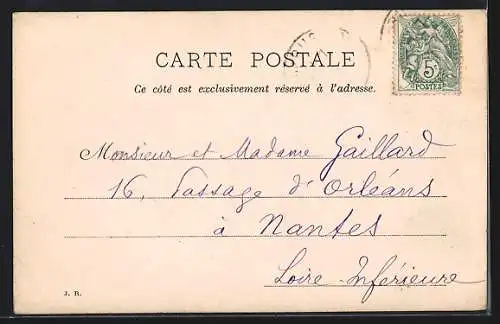 CARTE POSTALE
Ce côté est exclusivement réservé à l'adresse.
5c
POSTES
Monsieur et Madame Gaillard
16, Passage d'Orléans
à Nantes
Loire-Inférieure
J. R.